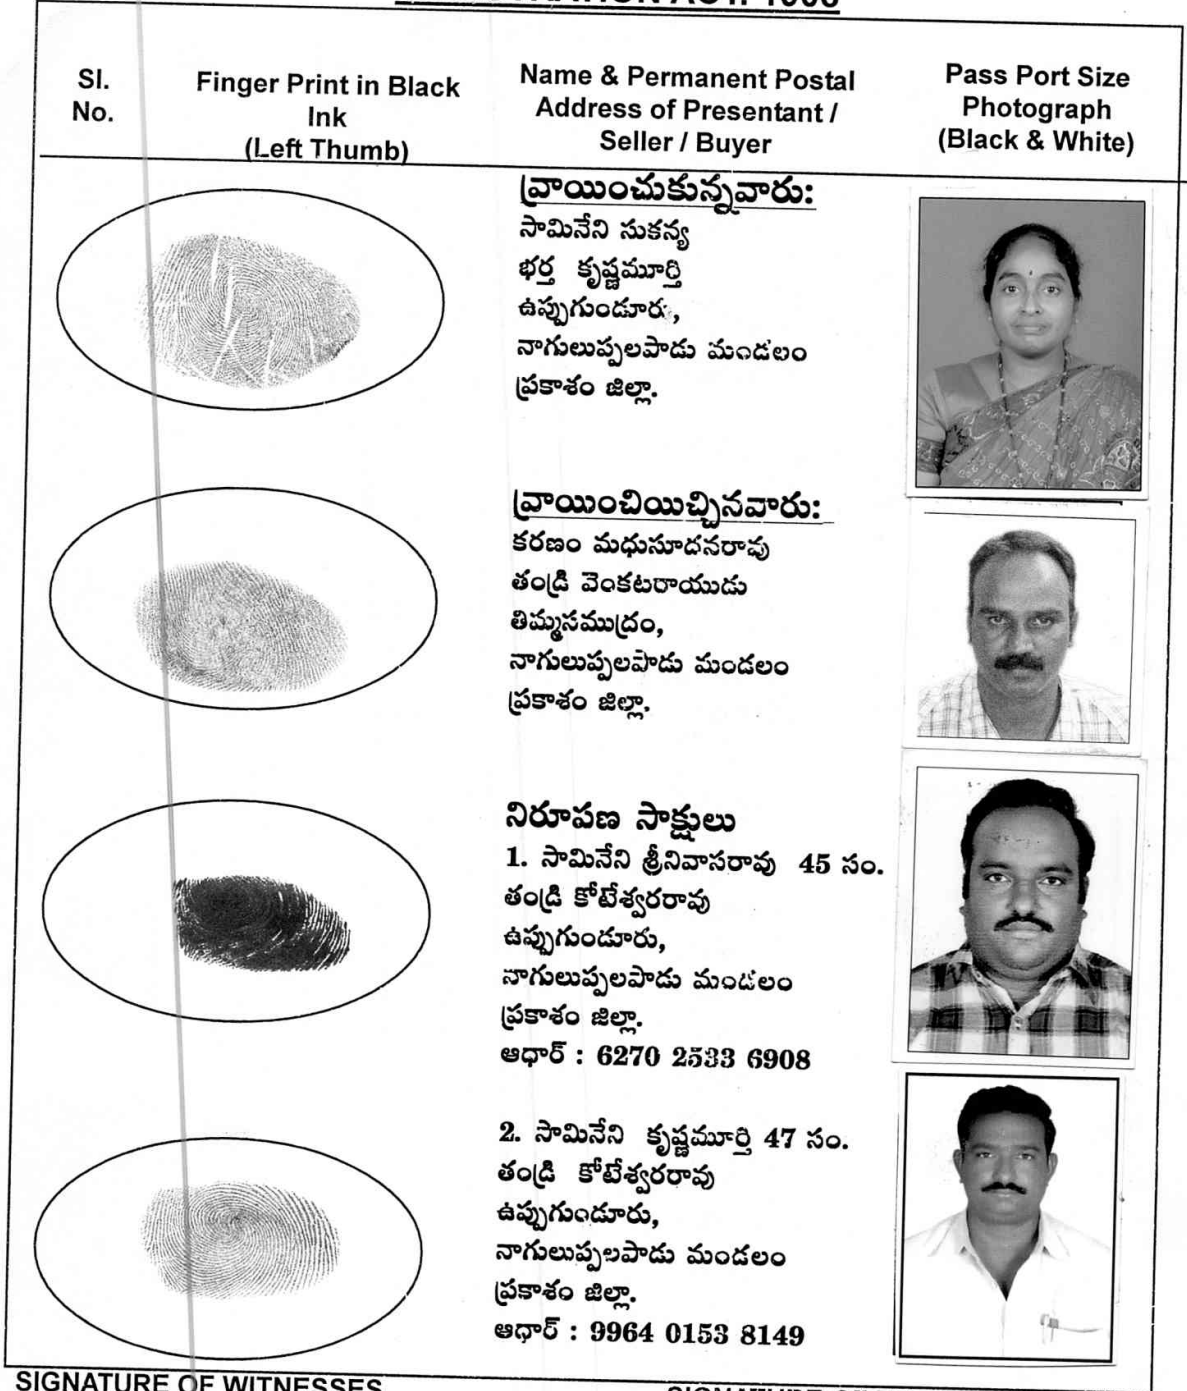 ACT. 1908
Sl. No.
Finger Print in Black Ink (Left Thumb)
Name & Permanent Postal Address of Presentant / Seller / Buyer
Pass Port Size Photograph (Black & White)
వ్రాయించుకున్నవారు:
సామినేని సుకన్య
భర్త కృష్ణమూర్తి
ఉప్పుగుండూరు,
నాగులుప్పలపాడు మండలం
ప్రకాశం జిల్లా.
వ్రాయించియిచ్చినవారు:
కరణం మధుసూదనరావు
తండ్రి వెంకటరాయుడు
తిమ్మసముద్రం,
నాగులుప్పలపాడు మండలం
ప్రకాశం జిల్లా.
నిరూపణ సాక్షులు
1. సామినేని శ్రీనివాసరావు 45 సం.
తండ్రి కోటేశ్వరరావు
ఉప్పుగుండూరు,
నాగులుప్పలపాడు మండలం
ప్రకాశం జిల్లా.
ఆధార్ : 6270 2533 6908
2. సామినేని కృష్ణమూర్తి 47 సం.
తండ్రి కోటేశ్వరరావు
ఉప్పుగుండూరు,
నాగులుప్పలపాడు మండలం
ప్రకాశం జిల్లా.
ఆధార్ : 9964 0153 8149
SIGNATURE OF WITNESSES